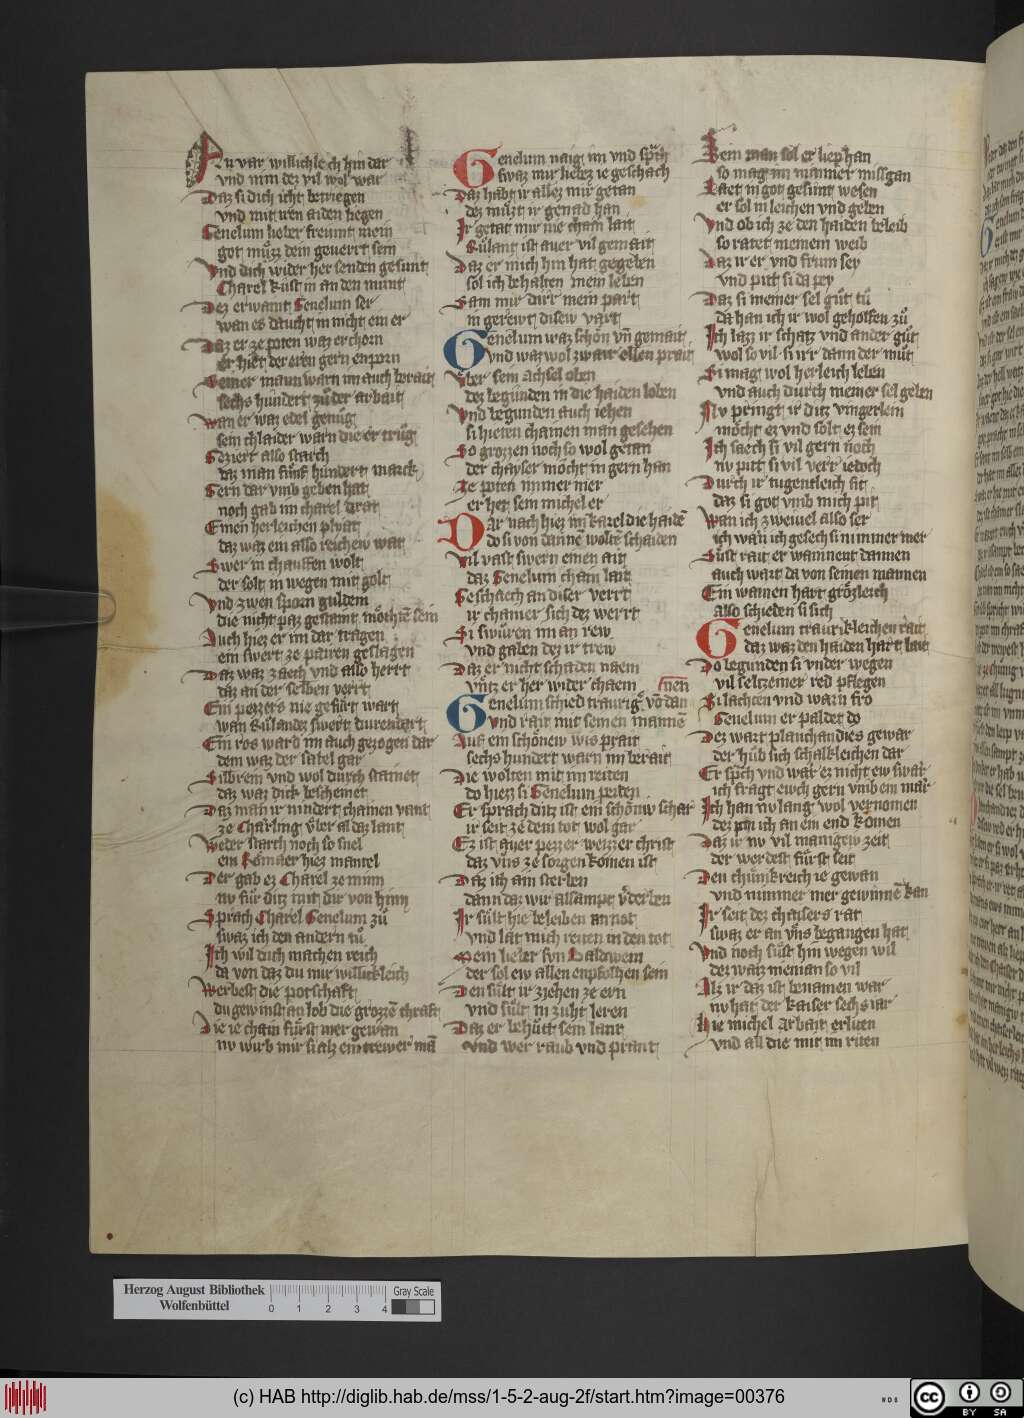 Nu var willichleich hin dar
vnd nim dez vil wol war
Daz si dich icht betriegen
vnd mit irn aiden liegen
Genelum lieber freunt mein
got muͤzz dein geuert sein
Vnd dich wider her senden gesunt
Charel kust in an den munt
Dez erwamt Genelum ser
wan es daucht in nicht ein er
Daz er ze poten waz erchorn
er hiet der eren gern enporn
Seiner mann warn im auch berait
sechs hundert zuͦ der arbait
Wan er waz edel genuͦg
sein chlaider warn die er truͦg
Geziert also starch
daz man fuͤnf hundert marck
Gern dar vmb geben hat
noch gab im charel drat
Einen herleichen plyat
daz waz ein also reichew wat
Swer in chauffen wolt
der solt in wegen mit golt
Vnd zwen sporn guldein
die nicht paz gestaint moͤchtē sein
Auch hiez er im dar tragen
ein swert ze pairen geslagen
Daz waz zaech vnd also hertt
daz an der selben vertt
Ein pezzers nie gefuͤrt wart
wan Ruͤlandez swert durendart
Ein ros ward im auch gezogen dar
dem waz der satel gar
Silbrein vnd wol durch stainet
daz waz dick bescheinet
Daz man ir nindert chainen vant
ze Charling vͤber al daz lant
Weder starch noch so snel
ein Roͤmaer hiez mantel
Der gab ez Charel ze minn
nv fuͤr ditz mit dir von hinn
Sprach Charel Genelum zuͦ
swaz ich den andern tuͦ
Ich wil dich machen reich
da von daz du mir willichleich
Werbest die potschaft
du gewinst an lob die grozzē chraft
Die ie chain fuͤrst mer gewan
nv wirb mir si alz ein trewer mā
Genelum naig im vnd sp̄ch
swaz mir liebez ie geschach
Daz habt ir allez mir getan
dez muͤzt ir genad han
Ir getat mir nie chain lait
Ruͤlant ist auer vil gemait
Daz er mich hin hat gegeben
sol ich behalten mein leben
Sam mir durr mein part
in gerewt disew vart
Genelum waz schoͤn vn̄ gemait
Vnd waz wol zwair ellen prait
Vber sein achsel oben
dez begunden in die haiden loben
Vnd begunden auch iehen
si hieten chainen man gesehen
So grozzen noch so wol getan
der chayser moͤcht in gern han
Ze poten nimmer mer
er het sein michel er
Dar nach hiez im karel die haidē
do si von dannē woltē schaiden
Vil vast swern einen ait
daz Genelum chain lait
Geschaech an diser vertt
ir chainer sich dez wertt
Si swuͦren im an rew
vnd gaben dez ir trew
Daz er nicht schaden naem
vntz er her wider chaem
Genelum schied traurig vō dan
nen
Vnd rait mit seinen mannē
Auf ein schoͤnew wis prait
sechs hundert warn im berait
Die wolten mit im reiten
do hiezz si Genelum peiten
Er sprach ditz ist ein schoͤniw schar
ir seit ze dem tot wol gar
Ez ist auer pezzer weizzer christ
daz vns ze sorgen komen ist
Daz ich ain sterben
dann daz wir allsampt vͤderben
Ir suͤlt hie beleiben an not
vnd lat mich reiten in den tot
Mein lieber svn Baldwein
der sol ew allen enpfolhen sein
Den suͤlt ir ziehen ze ern
vnd suͤlt in zuht leren
Daz er behuͤtt sein lant
vnd wer raub vnd prant
Kein man sol er liep han
so mag im nimmer missgan
Laet in got gesunt wesen
er sol in leichen vnd geben
Vnd ob ich ze den haiden beleib
so ratet meinem weib
Daz ir er vnd frum sey
vnd pitt si da pey
Daz si meiner sel guͤt tuͦ
da han ich ir wol geholfen zuͦ
Ich lazz ir schatz vnd ander guͦt
wol so vil si ir dann der muͦt
Si mag wol herleich leben
vnd auch durch meiner sel geben
Nv pringt ir ditz vingerlein
moͤcht ez vnd solt ez sein
Ich saech si vil gern noch
nv pitt si vil verr iedoch
Durch ir tugentleich sit
daz si got vmb mich pit
Wan ich zweiuel also ser
ich wan ich gesech si nimmer mer
Suͤst rait er wainent dannen
auch wart da von seinen mannen
Ein wainen hart groͤzleich
also schieden si sich
Genelum traurikleichen rait
daz waz den haiden hart lait
Do begunden si vnder wegen
vil seltzemer red pflegen
Si lachten vnd warn fro
Genelum er paldet do
Dez wart planchandies gewar
der huͦb sich schalkleichen dar
Er sp̄ch vnd war ez nicht ew swar
ich fragt ewch gern vmb ein mar
Ich han nv lang wol vernomen
dez pin ich an ein end komen
Daz ir nv vil manigew zeit
der werdest fuͤrst seit
Den chuͤnkreich ie gewan
vnd nimmer mer gewinnē kan
Ir seit dez chaisers rat
swaz er an vns begangen hat
Vnd noch suͤst hin wegen wil
dez waiz nieman so vil
Alz ir daz ist benamen war
nv hat der kaiser sechs iar
Hie michel arbait erliten
vnd all die mit im riten
Herzog August Bibliothek
Wolfenbüttel
0 1 2 3 4
Gray Scale
(c) HAB http://diglib.hab.de/mss/1-5-2-aug-2f/start.htm?image=00376
cc BY SA